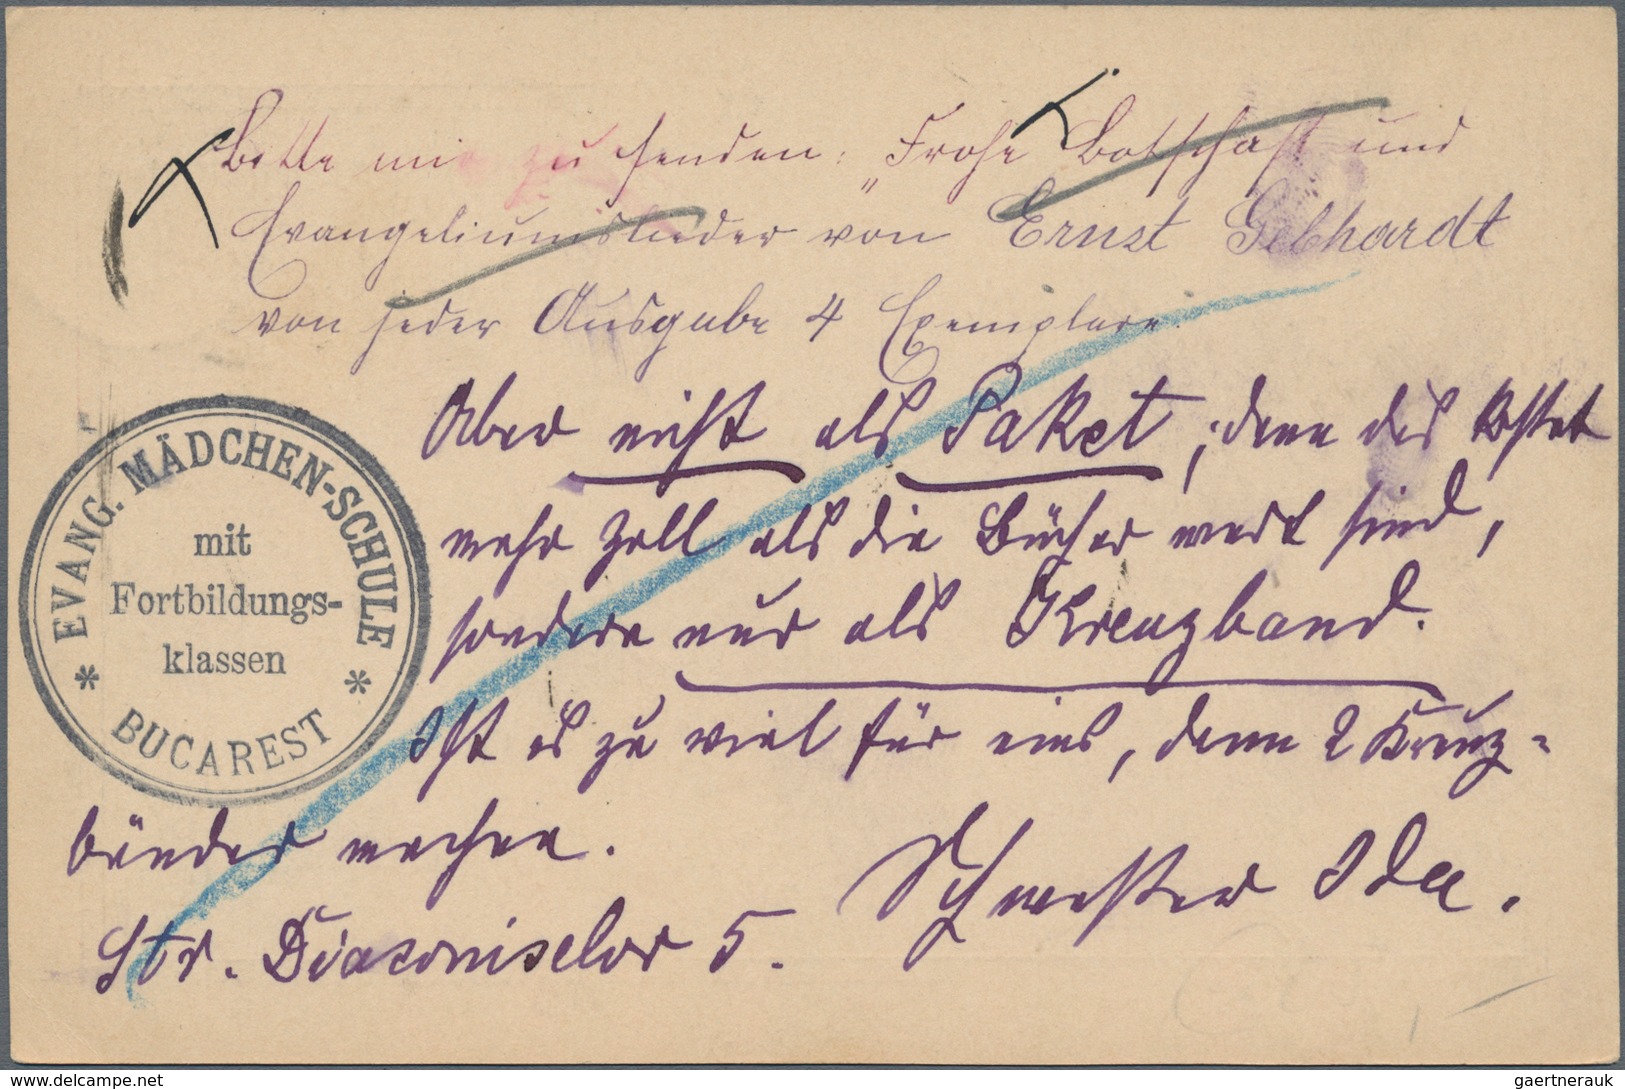 Bitte mir zu senden: „Frohe Botschaft und
Evangeliumslieder von Ernst Gebhardt
von jeder Ausgabe 4 Exemplare.
Aber nicht als Paket; denn das kostet
mehr Zoll als die Bücher wert sind,
sondern nur als Kreuzband.
Ist es zu viel für eins, dann 2 Kreuz-
bänder machen.
Schwester Ida.
Str. Diaconiselor 5.
* EVANG. MÄDCHEN-SCHULE *
mit
Fortbildungs-
klassen
BUCAREST
www.delcampe.net
gaertnerauk